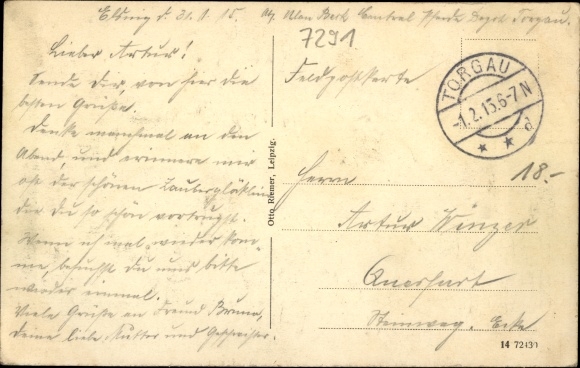 Elsnig d. 31.1.15. Ulan Beck Central Pferde Depot Torgau.
7291
Lieber Artur!
Sende Dir, von hier die
besten Grüße.
Denke manchmal an den
Abend, und erinnere mir
oft der schönen
die Du so schön vortrugst.
Wenn ich mal wieder kom-
me, besuchst Du uns bitte
wieder einmal.
Viele Grüße an Freund Bruno,
Deine liebe Mutter und Geschwister.
Otto Riemer, Leipzig.
Feldpostkarte
TORGAU
-1.2.15.6-7N
d
18.-
Herrn
Artur Winzer
Querfurt
Steinweg. Ecke
14 72430